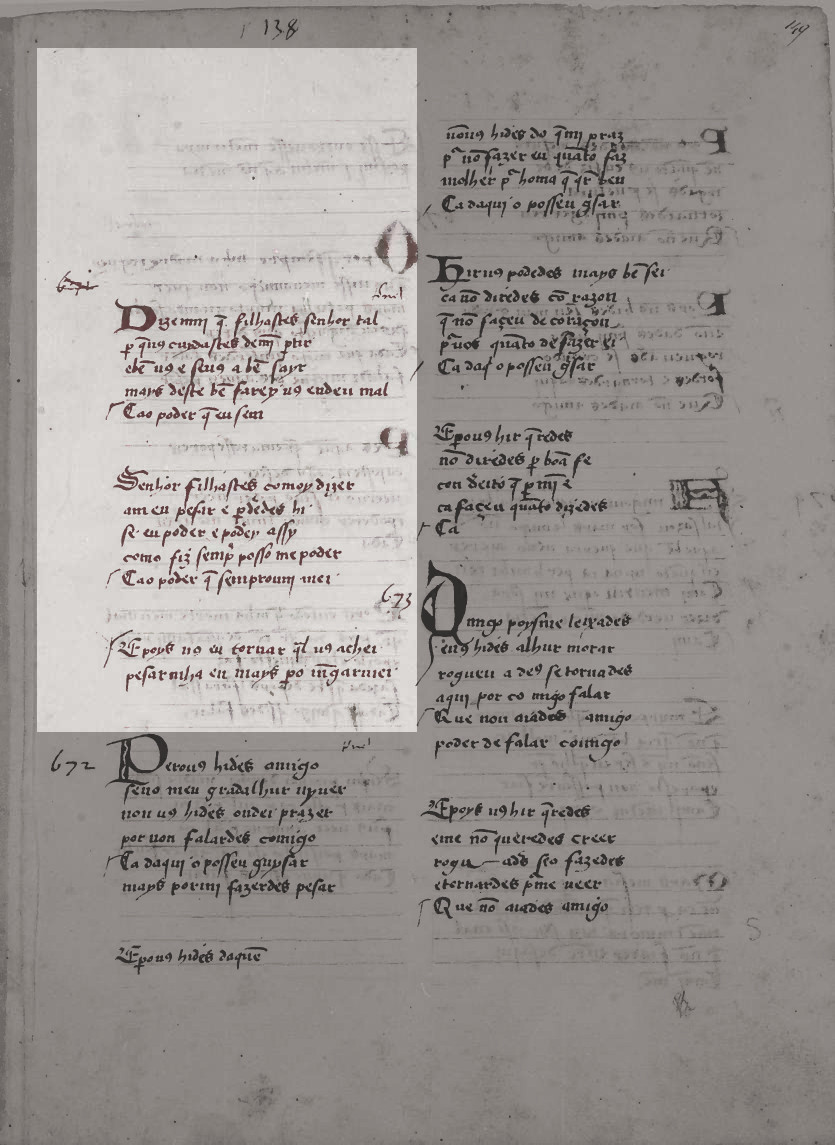 138
149
Dizemmj q̄ filhastes senhor tal
ꝑ q̄ uꝯ cuydastes demī ꝑtir
ebē uꝯ e seuꝯ a bē sayr
mays deste bē farey uꝯ endeu mal
Cao poder q̄ eu sem
Senhor filhastes comoy dizer
am eu pesar e ꝑdedes hi
se eu poder e podey assy
como fiz semp̄ posso me poder
Cao poder q̄ semproum mei
Epoys uꝯ eu tornar q̄l uꝯ achei
pesar mha en mays ꝑo
672
Perouꝯ hides amigo
seno meu gradalhur uyuer
non uꝯ hides ondei prazer
por non falardes comigo
Ca daqui o posseu guysar
mays pormi fazerdes pesar
Eꝑouꝯ hides daquē
nouꝯ hides do q̄mj praz
p̄ nō fazer eu quāto faz
molher p̄ homa q̄ q̄r beu
Ca daqui o posseu ḡsar
Hiruꝯ podedes mays bē sei
ca nō diredes cō razon
q̄ nō façeu de coraçon
p̄ uos quāto de fazer ei
Ca daq̇ o posseu ḡsar
Eꝑouꝯ hir q̄redes
nō diredes ꝑ boā fe
con deito q̄ ꝑ mī e
ca façeu quāto dizedes
Ca
673
Amigo poysme leixades
euꝯ hides alhur morar
rogueu a deꝯ se tornades
aqui por co migo falar
Que non aiades amigo
poder de falar comigo
Epoys uꝯ hir q̄redes
eme nō queredes creer
rogu a ds̄ seo fazedes
etornardes p̄me ueer
Que nō aiades amigo